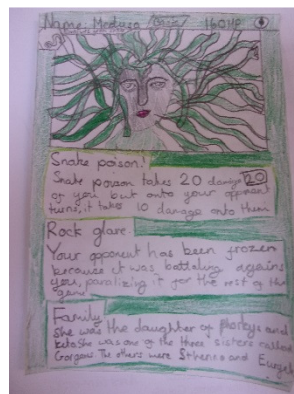 Name: Medusa Basic 160HP
Snake poison!
Snake poison takes 20 damage 20
of you but onto your opponent
turns, it takes 10 damage onto them
Rock glare.
Your opponent has been frozen
because it was battling agains
you, paralizing it for the rest of the
game
Family
She was the daughter of Phorkys and
keto She was one of the three sisters called
Gorgons The others were Stheno and